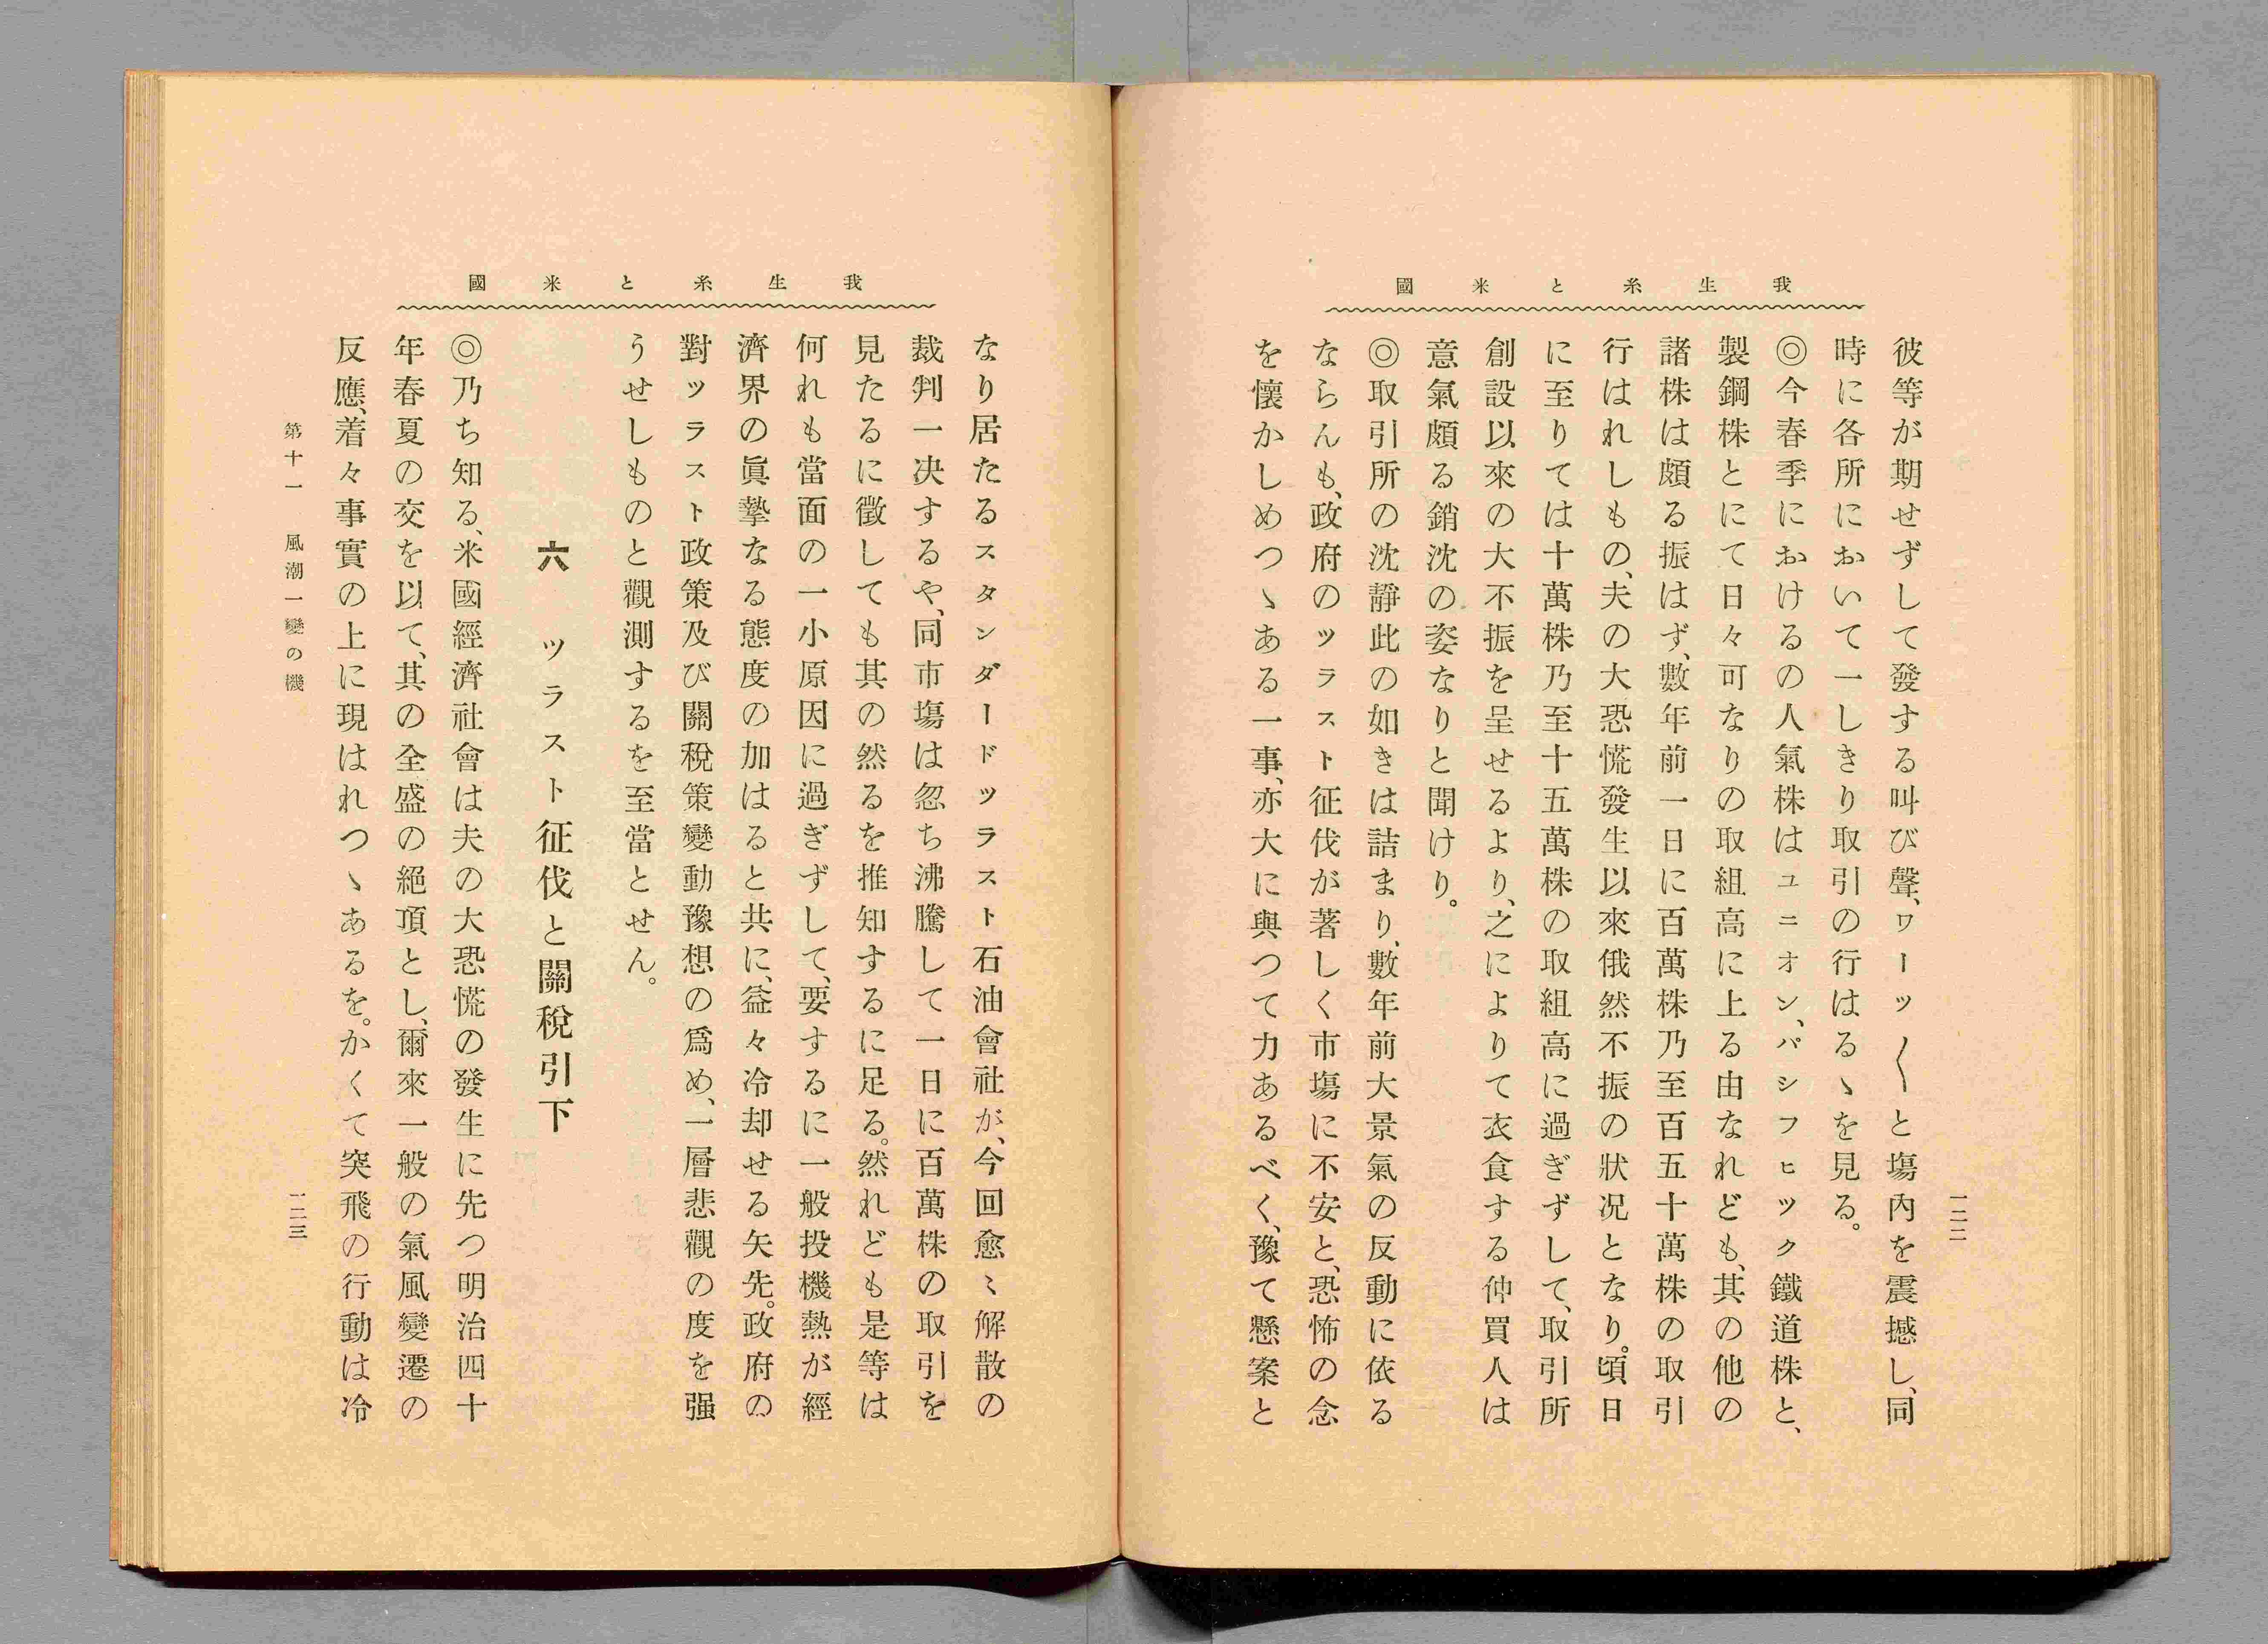 我生糸と米國
彼等が期せずして發する叫び聲、ワーッ〱と塲內を震撼し、同
時に各所において一しきり取引の行はるゝを見る。
◎今春季におけるの人氣株はユニオン、パシフヒック鐵道株と、
製鋼株とにて日々可なりの取組高に上る由なれども、其の他の
諸株は頗る振はず、數年前一日に百萬株乃至百五十萬株の取引
行はれしもの、夫の大恐慌發生以來俄然不振の狀况となり。頃日
に至りては十萬株乃至十五萬株の取組高に過ぎずして、取引所
創設以來の大不振を呈せるより、之によりて衣食する仲買人は
意氣頗る銷沈の姿なりと聞けり。
◎取引所の沈靜此の如きは詰まり、數年前大景氣の反動に依る
ならんも、政府のツラスト征伐が著しく市塲に不安と、恐怖の念
を懷かしめつゝある一事、亦大に與つて力あるべく、豫て懸案と
一二二
我生糸と米國
なり居たるスタンダードッラスト石油會社が、今回愈〻解散の
裁判一决するや、同市塲は忽ち沸騰して一日に百萬株の取引を
見たるに徵しても其の然るを推知するに足る。然れども是等は
何れも當面の一小原因に過ぎずして、要するに一般投機熱が經
濟界の眞摯なる態度の加はると共に、益々冷却せる矢先。政府の
對ッラスト政策及び關稅策變動豫想の爲め、一層悲觀の度を强
うせしものと觀測するを至當とせん。
六　ツラスト征伐と關稅引下
◎乃ち知る、米國經濟社會は夫の大恐慌の發生に先つ明治四十
年春夏の交を以て、其の全盛の絕頂とし、爾來一般の氣風變遷の
反應、着々事實の上に現はれつゝあるを。かくて突飛の行動は冷
第十一　風潮一變の機
一二三